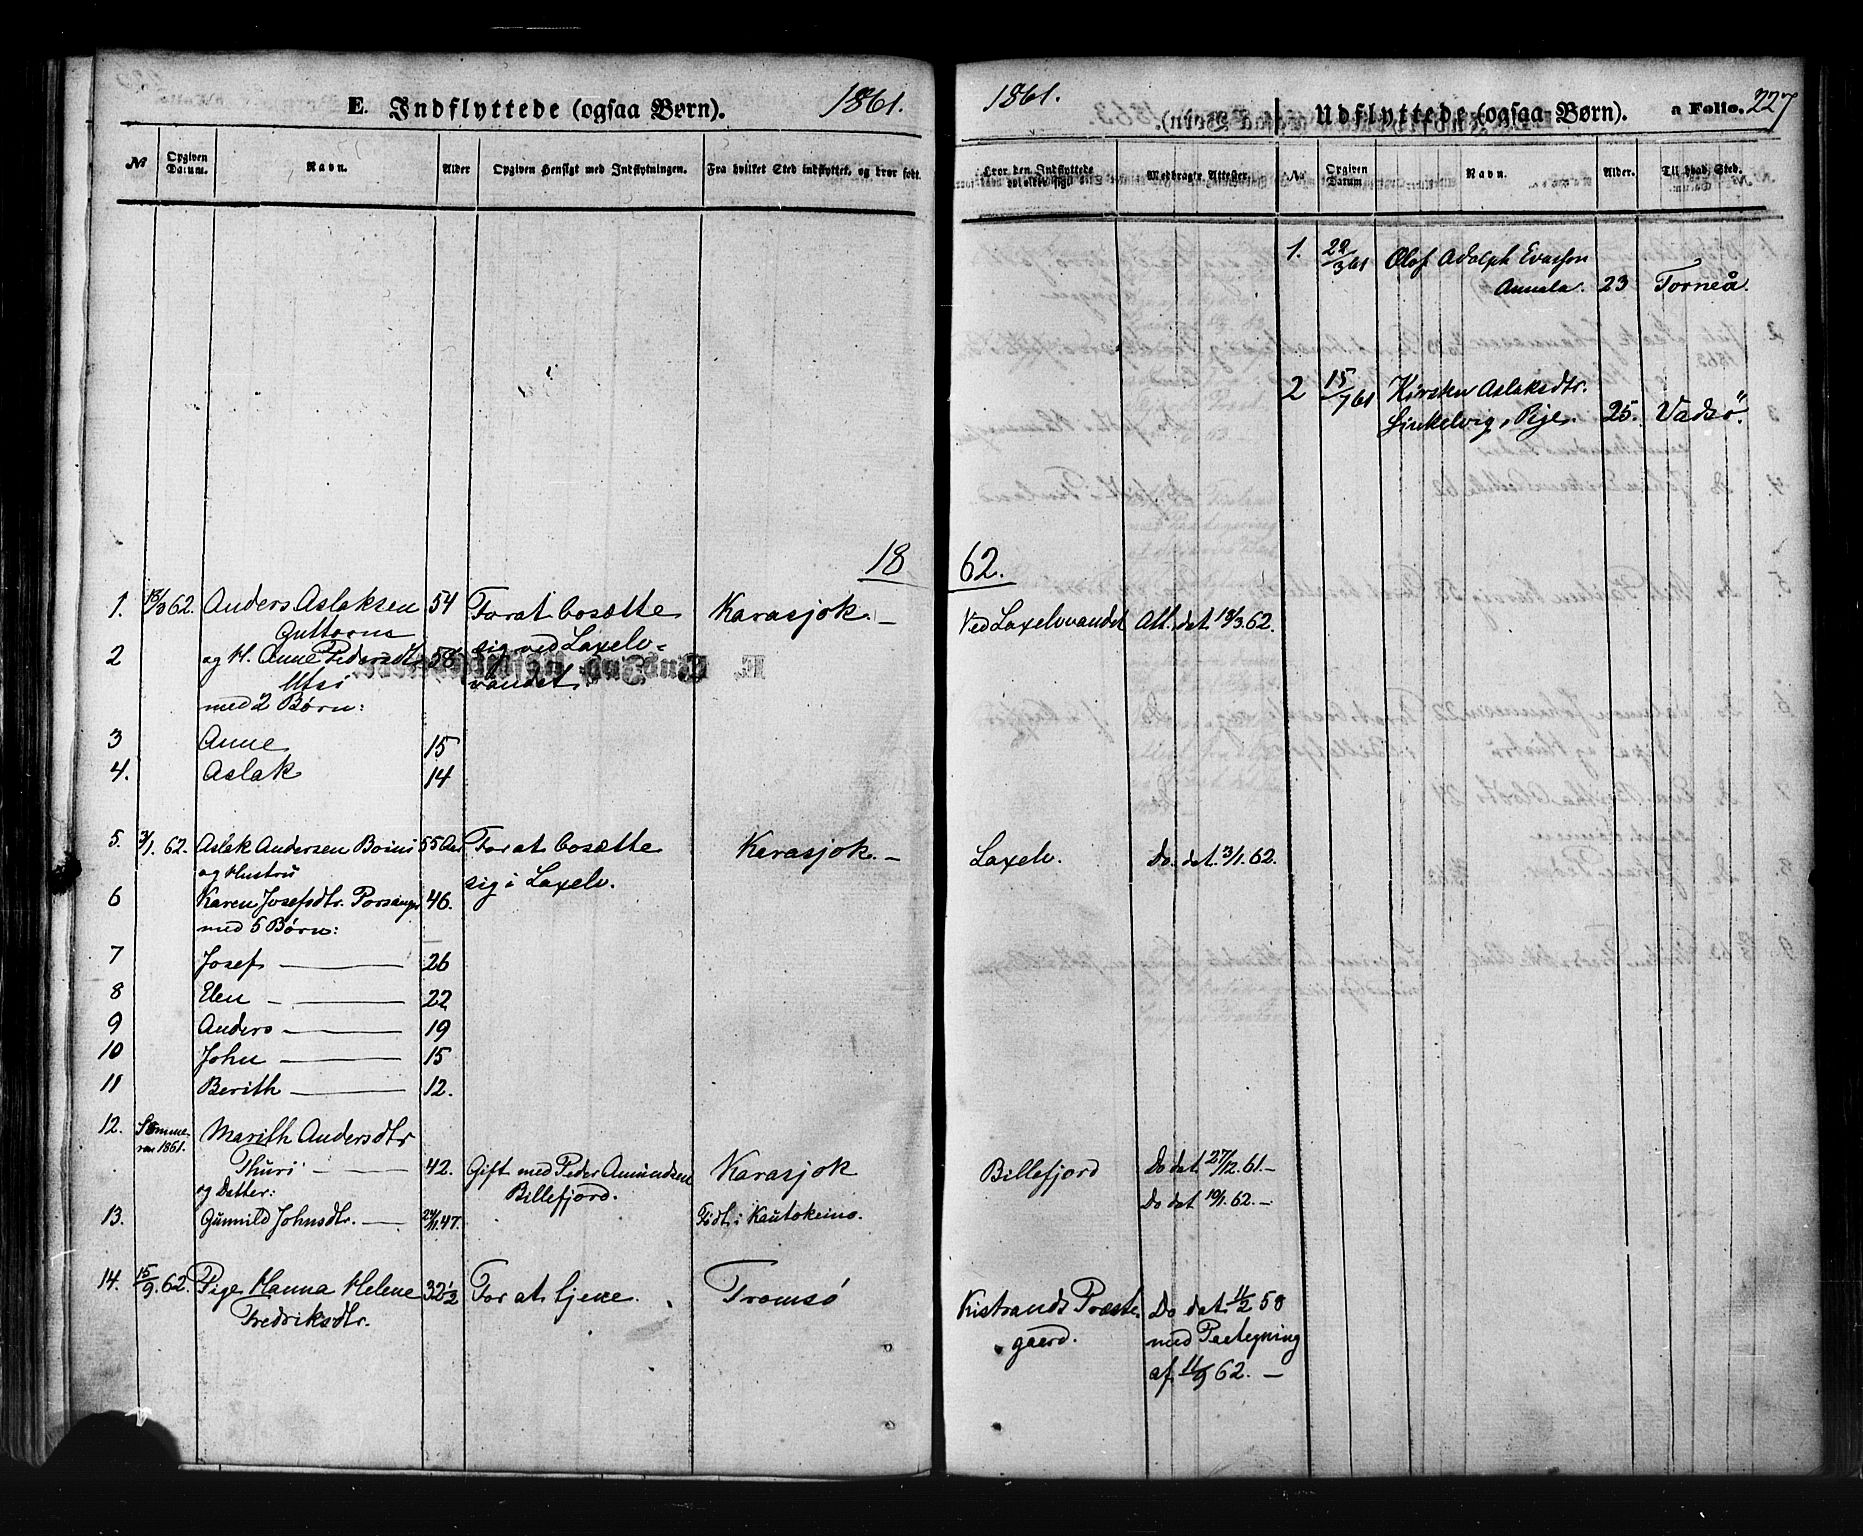 E. Indflyttede (ogsaa Børn). 1861.
No Opgiven Datum. Navn. Alder Opgiven Hensigt med Indflytningen. Fra hvilket Sted indflyttet, og hvor født.
18
1. 18/3 62. Anders Aslaksen 54 For at bosætte Karasjok. –
Guttorm sig ved Laxelv-
2 og H. Anne Pedersdtr 58 vandet
Utsi
med 2 Børn:
3 Anne 15
4. Aslak 14
5. 3/1. 62. Aslak Andersen Boini 55 Aar For at bosætte Karasjok. –
og Hustru sig i Laxelv.
6 Karen Josefsdtr. Porsanger 46.
med 5 Børn:
7 Josef — 26
8 Elen — 22
9 Anders — 19
10 John — 15
11 Berith — 12.
12. Somme- Marith Andersdtr
ren 1861. Thuri — 42. Gift med Peder Amundsen Karasjok
og Datter: Billefjord.
13. Gunnild Johnsdtr. — 24/11.47. Født i Kautokeino.
14. 15/9 62. Pige Hanna Helene 32 1/2 For at tjene. Tromsø
Fredriksdtr.
1861. Udflyttede (ogsaa Børn). a Folio. 227
Hvor den Indflyttede Medbragte Attester. No Opgiven Datum Navn. Alder. Til hvad Sted.
1. 22/3 61 Olof Adolph Evarson
Annala. 23 Torneå.
2 15/7 61 Kirsten Aslaksdtr.
Pige. 25. Vadsø.
62.
Ved Laxelvvandet Att. dat. 18/3. 62.
Laxelv. Do. dat. 3/1. 62.
Billefjord Do dat. 27/12. 61 –
Do dat 19/1. 62. –
Kistrands Præste- Do dat. 11/2 58
gaard. med Paategning
af 11/9 62. –